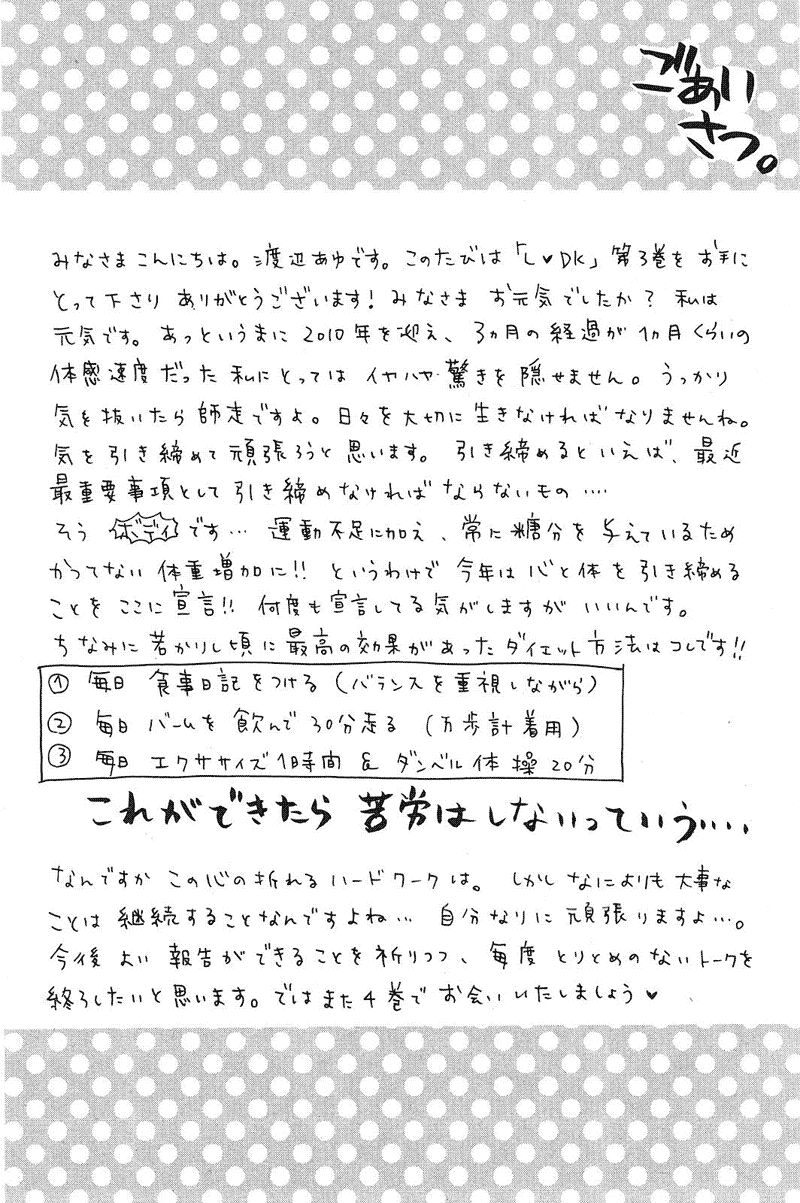 ごあい
さつ。
みなさまこんにちは。渡辺あゆです。このたびは「L♥DK」第3巻をお手に
とって下さり ありがとうございます！みなさま お元気でしたか？ 私は
元気です。あっというまに 2010年を迎え、3ヵ月の経過が 1ヵ月くらいの
体感速度だった 私にとっては イヤハヤ 驚きを隠せません。うっかり
気を抜いたら師走ですよ。日々を大切に生きなければなりませんね。
気を引き締めて頑張ろうと思います。引き締めるといえば、最近
最重要事項として引き締めなければならないもの‥‥
そう ボディです… 運動不足に加え、常に糖分を与えているため
かつてない 体重増加に!! というわけで 今年は心と体を引き締める
ことを ここに宣言!! 何度も宣言してる気がしますが いいんです。
ちなみに若かりし頃に最高の効果があったダイエット方法はコレです!!
① 毎日 食事日記をつける（バランスを重視しながら）
② 毎日 バームを飲んで30分走る（万歩計着用）
③ 毎日 エクササイズ1時間 & ダンベル体操20分
これができたら 苦労は しないっていう‥‥
なんですか この心の折れるハードワークは。しかし なによりも大事な
ことは 継続することなんですよね… 自分なりに頑張りますよ…。
今後 よい 報告ができることを祈りつつ、毎度 とりとめのないトークを
終ろしたいと思います。ではまた4巻で お会いいたしましょう♥